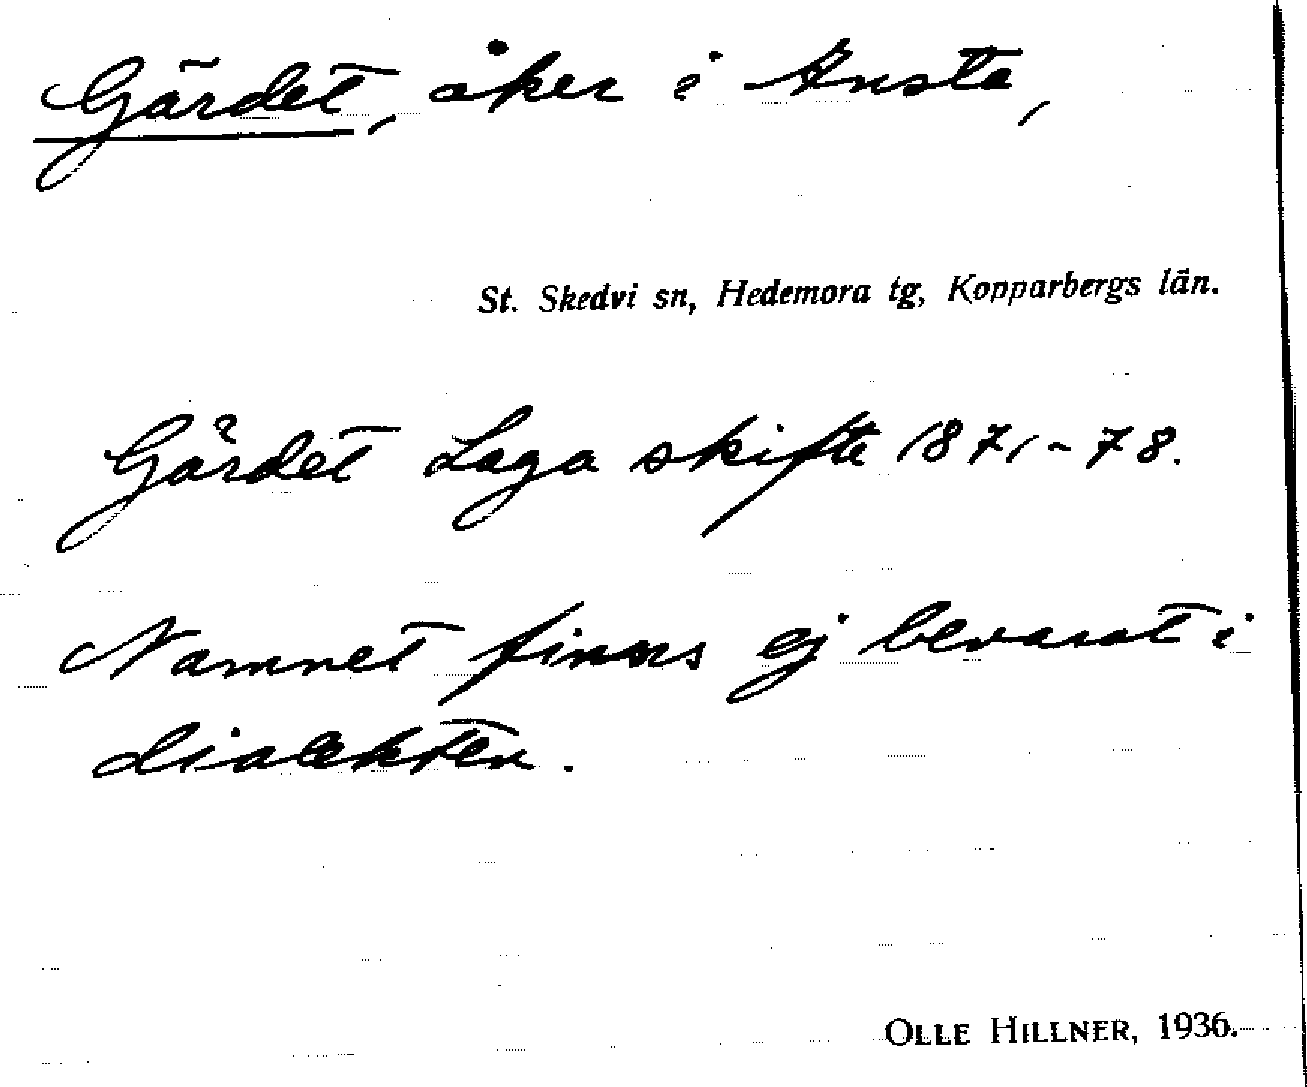 Gärdet, åker i Ansta,
St. Skedvi sn, Hedemora tg, Kopparbergs län.
Gärdet Laga skifte 1871-78.
Namnet finns ej bevarat i
dialekten.
OLLE HILLNER, 1936.